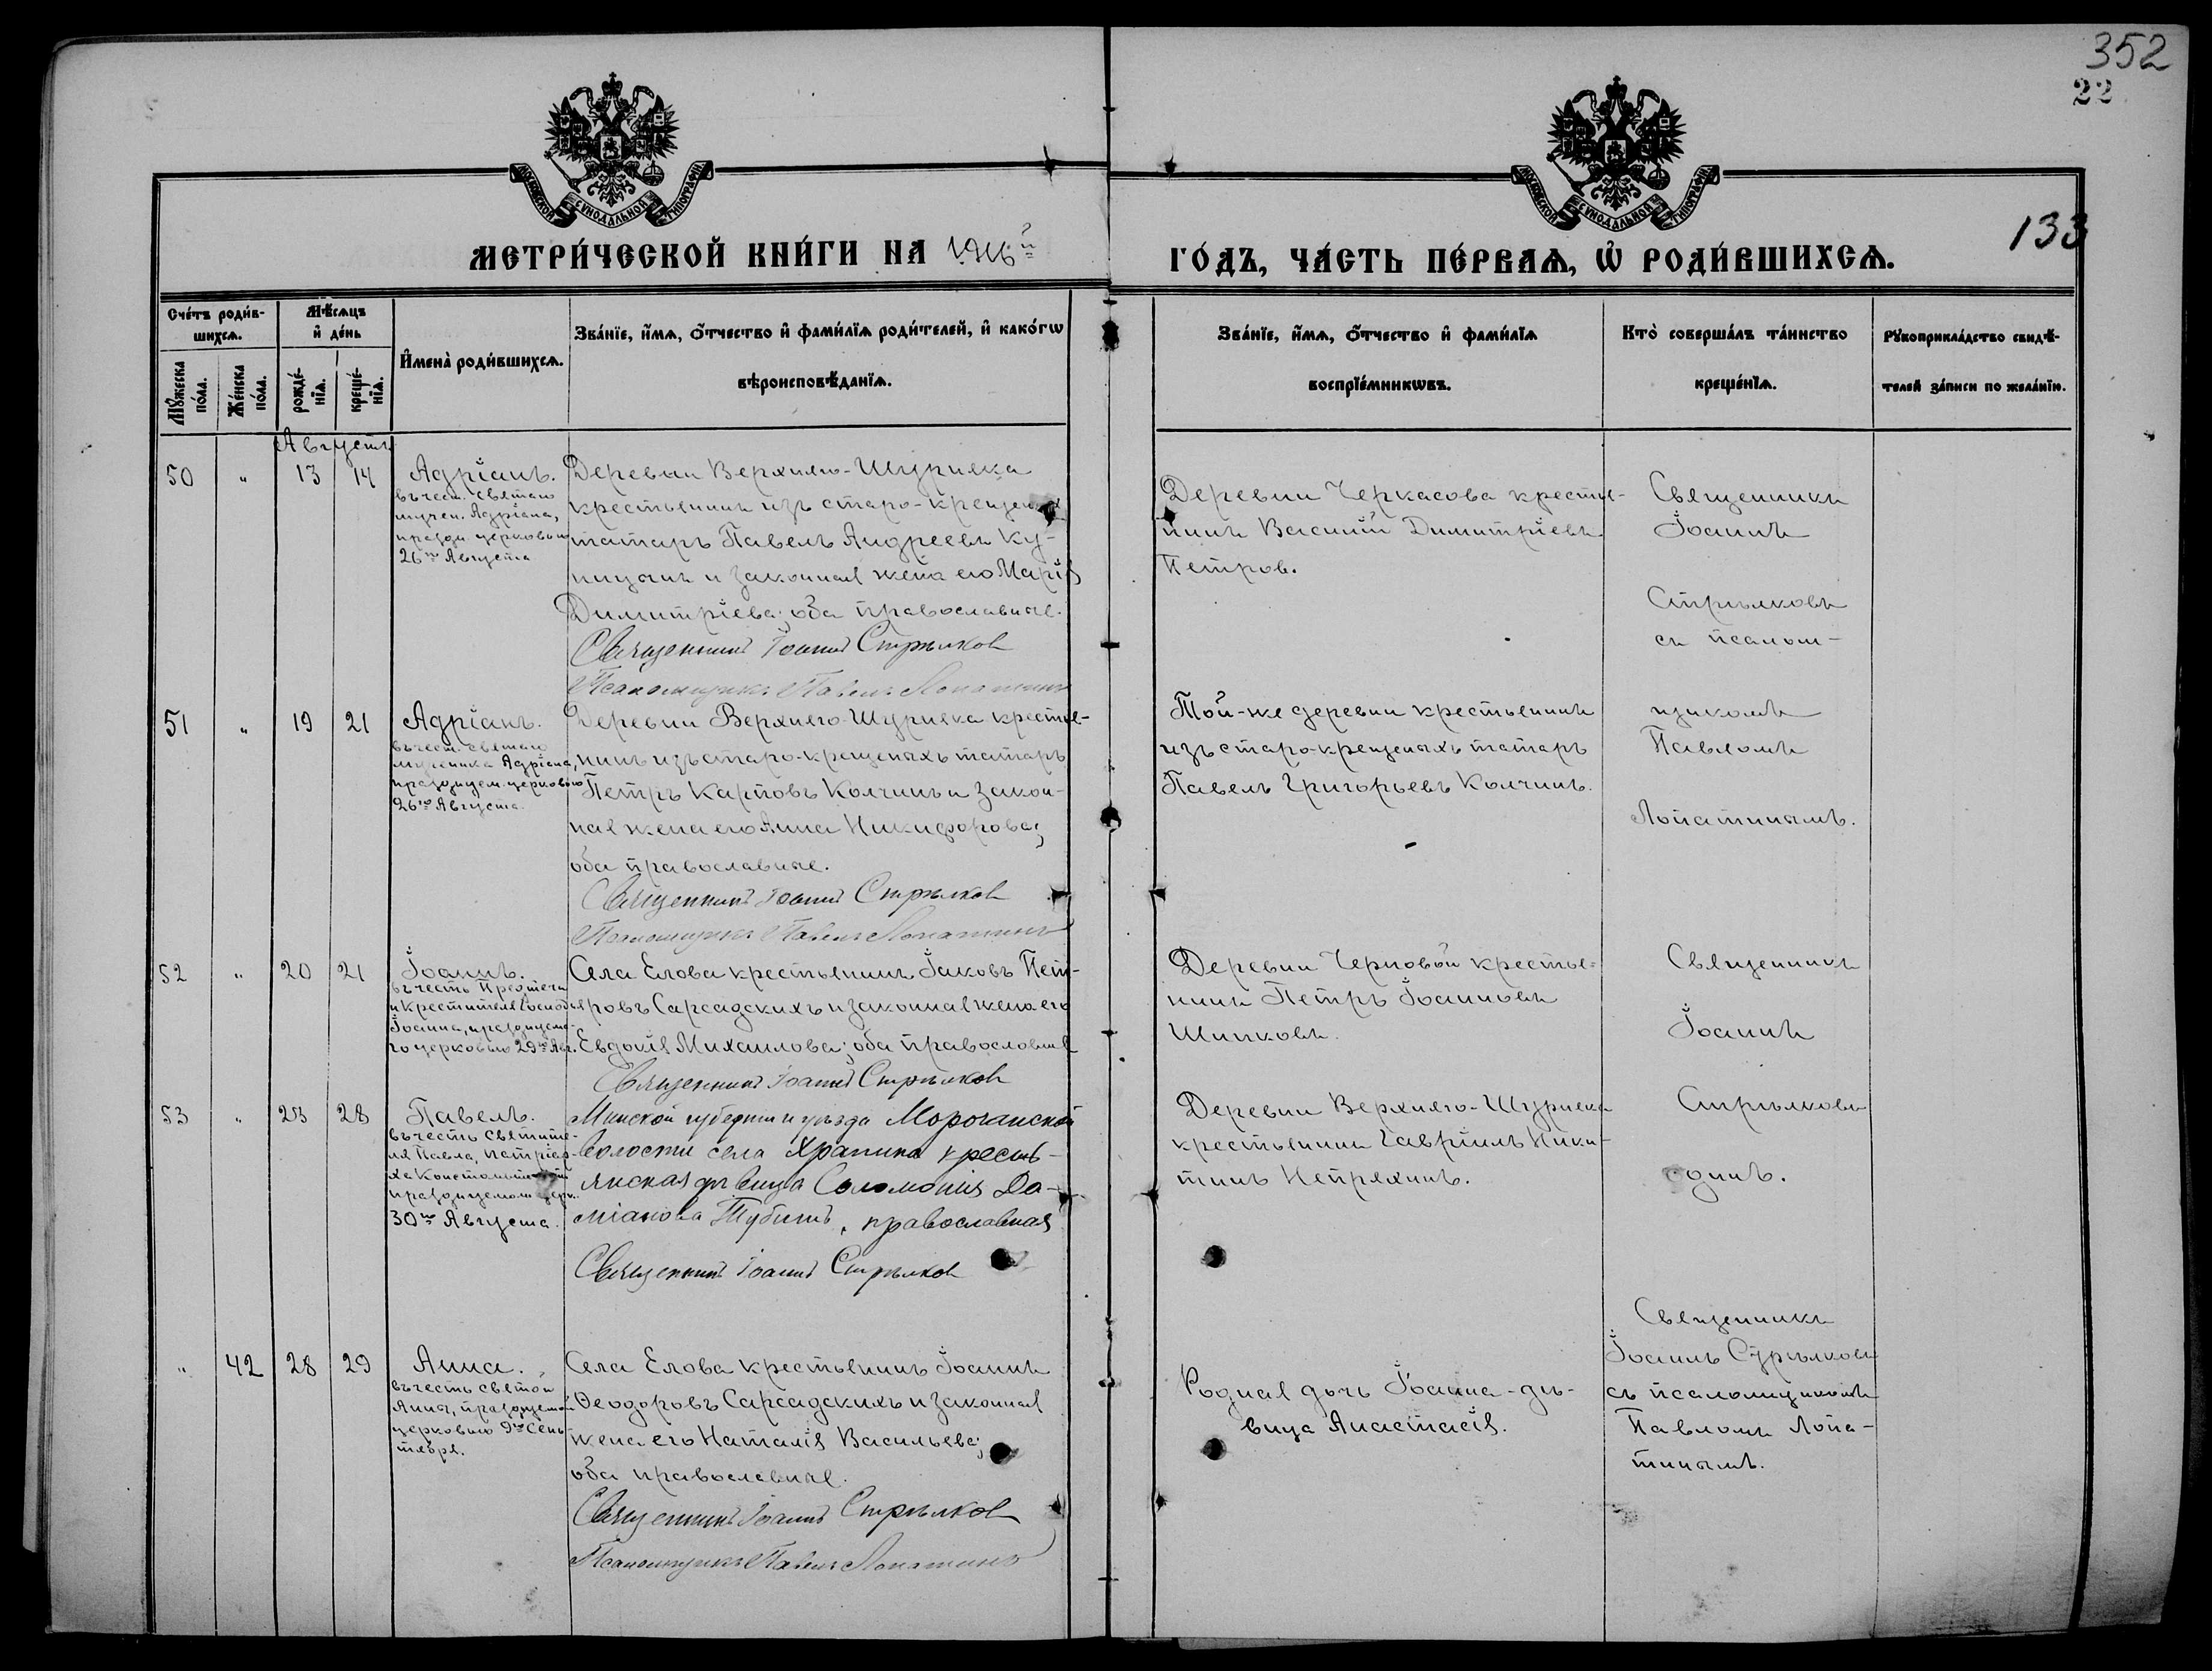 352
22
133
МОСКОВСКОЙ СѴНОДАЛЬНОЙ ТИПОГРАФІИ
МОСКОВСКОЙ СѴНОДАЛЬНОЙ ТИПОГРАФІИ
МЕТРИ́ЧЕСКОЙ КНИ́ГИ НА 1916й
ГО́ДЪ, ЧА́СТЬ ПЕ́РВАѦ, Ѡ РОДИ́ВШИХСѦ.
Сче́тъ роди́в-
шихсѧ.
Мꙋ́жеска по́ла.
Же́нска по́ла.
Мѣ́сѧцъ
и҆ де́нь
рожде́-
нїѧ.
креще́-
нїѧ.
И҆мена̀ роди́вшихсѧ.
Зва́нїе, и҆́мѧ, ѻ҆́тчество и҆ фами́лїѧ роди́телей, и҆ како́гѡ
вѣроисповѣ́данїѧ.
Зва́нїе, и҆́мѧ, ѻ҆́тчество и҆ фами́лїѧ
воспрїе́мникѡвъ.
Кто̀ соверша́лъ та́инство
креще́нїѧ.
Рꙋкоприкла́дство свидѣ́-
телей за́писи по жела́нїю.
Августъ
50 " 13 14
Адріанъ.
въ чест. святаго
мучен. Адріана,
праздн. церковью
26го Августа
Деревни Верхняго-Шуряка
крестьянинъ изъ старо-крещеныхъ
татаръ Павелъ Андреевъ Ку-
ницынъ и законная жена его Марія
Димитріева; оба православные.
Священникъ Іоаннъ Стрѣлков
Псаломщикъ Павелъ Лопатинъ
Деревни Черкасова крестья-
нинъ Василій Димитріевъ
Петров.
Священникъ
Іоаннъ
Стрѣлковъ
съ псалом-
щикомъ
Павломъ
Лопатинымъ.
51 " 19 21
Адріанъ.
въ чест. святаго
мученика Адріана,
празднуем. церковью
26го Августа.
Деревни Верхняго-Шуряка крестья-
нинъ изъ старо-крещеныхъ татаръ
Петръ Карповъ Колчинъ и закон-
ная жена его Анна Никифорова;
оба православные.
Священникъ Іоаннъ Стрѣлков
Псаломщикъ Павелъ Лопатинъ
Той-же деревни крестьянинъ
изъ старо-крещеныхъ татаръ
Павелъ Григорьевъ Колчинъ.
52 " 20 21
Іоаннъ.
въ честь Предтечи
и Крестителя Господня
Іоанна, празднуема-
го церковью 29го Авг.
Села Елова крестьянинъ Іаковъ Пет-
ровъ Сарсадскихъ и законная жена его
Евдокія Михаилова; оба православные
Священникъ Іоаннъ Стрѣлков
Деревни Черновой крестья-
нинъ Петръ Іоанновъ
Шипковъ.
Священникъ
Іоаннъ
Стрѣлковъ
одинъ.
53 " 25 28
Павелъ.
въ честь святите-
ля Павла, патріар-
ха
празднуемом церк.
30го Августа.
Минской губерніи и уѣзда
волости села Храпина кресть-
янская дѣвица Соломонія Да-
міанова православная
Священникъ Іоаннъ Стрѣлков
Деревни Верхняго-Шуряка
крестьянинъ Гавріилъ Ники-
тинъ Непряхинъ.
" 42 28 29
Анна.
въ честь святой
Анны, празднуемой
церковью 9го Сен-
тября.
Села Елова крестьянинъ Іоаннъ
Ѳеодоровъ Сарсадскихъ и законная
жена его Наталія Васильева;
оба православные.
Священникъ Іоаннъ Стрѣлков
Псаломщикъ Павелъ Лопатинъ
Родная дочь Іоанна - дѣ-
вица Анастасія.
Священникъ
Іоаннъ Стрѣлковъ
съ псаломщикомъ
Павломъ Лопа-
тинымъ.